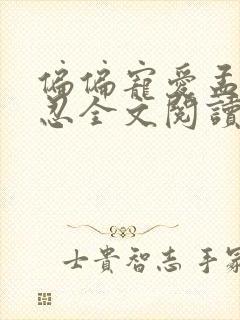 偏偏寵愛孟
忍全文閱讀
士貴智志手冢